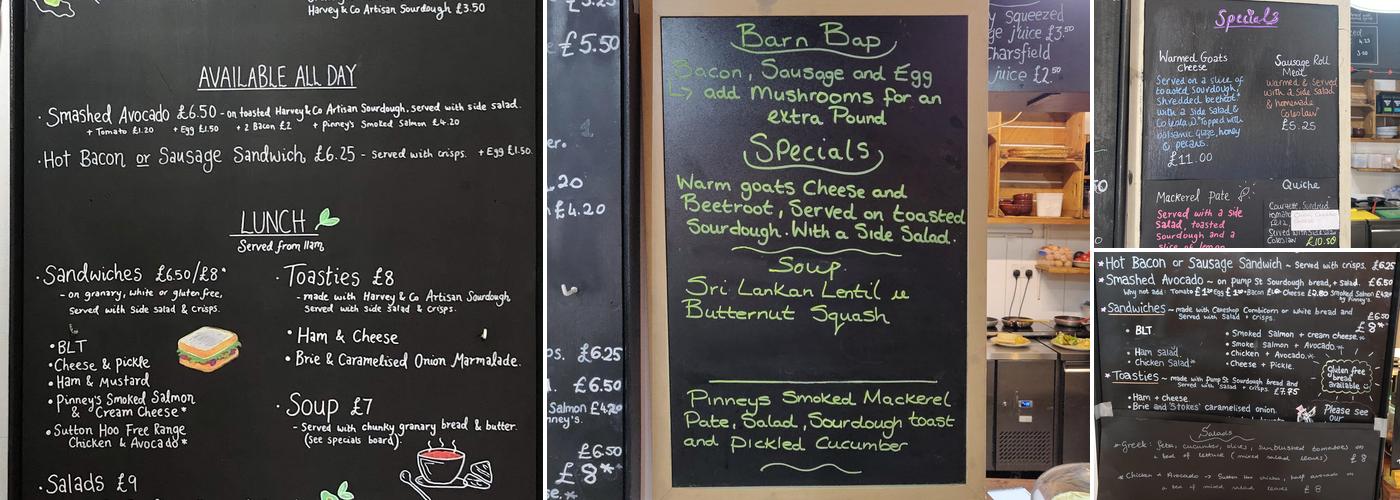 Harvey & Co Artisan Sourdough £3.50
AVAILABLE ALL DAY
· Smashed Avocado £6.50 - on toasted Harvey & Co Artisan Sourdough, served with side salad.
+ Tomato £1.20 + Egg £1.50 + 2 Bacon £2 + Pinney's Smoked Salmon £4.20
· Hot Bacon or Sausage Sandwich £6.25 - served with crisps. + Egg £1.50
LUNCH
Served from 11am
· Sandwiches £6.50/£8*
- on granary, white or gluten free,
served with side salad & crisps.
· BLT
· Cheese & pickle
· Ham & Mustard
· Pinney's Smoked Salmon
& Cream Cheese*
· Sutton Hoo Free Range
Chicken & Avocado*
· Salads £9
· Toasties £8
- made with Harvey & Co Artisan Sourdough
served with side salad & crisps.
· Ham & Cheese
· Brie & Caramelised Onion Marmalade.
· Soup £7
- Served with chunky granary bread & butter.
(see specials board)
£5.50
er.
.20
£4.20
ps. £6.25
£6.50
Salmon £4.20
nney's.
£6.50
£8*
Barn Bap
Bacon, Sausage and Egg
↳ add Mushrooms for an
extra Pound
Specials
Warm goats Cheese and
Beetroot, Served on toasted
Sourdough. With a Side Salad.
Soup
Sri Lankan Lentil
Butternut Squash
Pinneys Smoked Mackerel
Pate, Salad, Sourdough toast
and Pickled Cucumber
y squeezed
ge juice £3.50
Charsfield
juice £2.50
Specials
Warmed Goats
Cheese
Served on a slice of
toasted sourdough,
shredded beetroot
with a side salad &
Coleslaw. Topped with
balsamic glaze, honey
& pecans.
£11.00
Sausage Roll
Meal
Warmed & Served
with a side Salad
& homemade
Coleslaw
£5.25
Mackerel Pate
Served with a side
Salad, toasted
Sourdough and a
slice of lemon
Quiche
Courgette, Sundried
tomato
feta
Served with
Coleslaw £10.50
* Hot Bacon or Sausage Sandwich ~ Served with crisps. £6.25
* Smashed Avocado ~ on Pump St Sourdough bread, + Salad. £6.50
Why not add: Tomato Egg Bacon Cheese £2.80 Smoked Salmon £4.20
by Pinney's.
* Sandwiches ~ made with Cakeshop Combicorn or white bread and
Served with Salad + crisps. £6.50
£8*
• BLT
• Ham salad.
• Chicken Salad*
• Smoked Salmon + cream cheese.*
• Smoke Salmon + Avocado.*
• Chicken + Avocado.*
• Cheese + Pickle.
* Toasties ~ made with Pump St Sourdough bread and
Served with salad + crisps. £7.95
• Ham + cheese
• Brie and 'Stokes' caramelised onion.
Gluten free
bread
available
Please see
our
Salads
* Greek: feta, cucumber, olives, sunblushed tomatoes on
a bed of lettuce (mixed salad leaves) £8
* Chicken + Avocado → Sutton Hoo chicken, half avocado on
a bed of mixed salad leaves £8